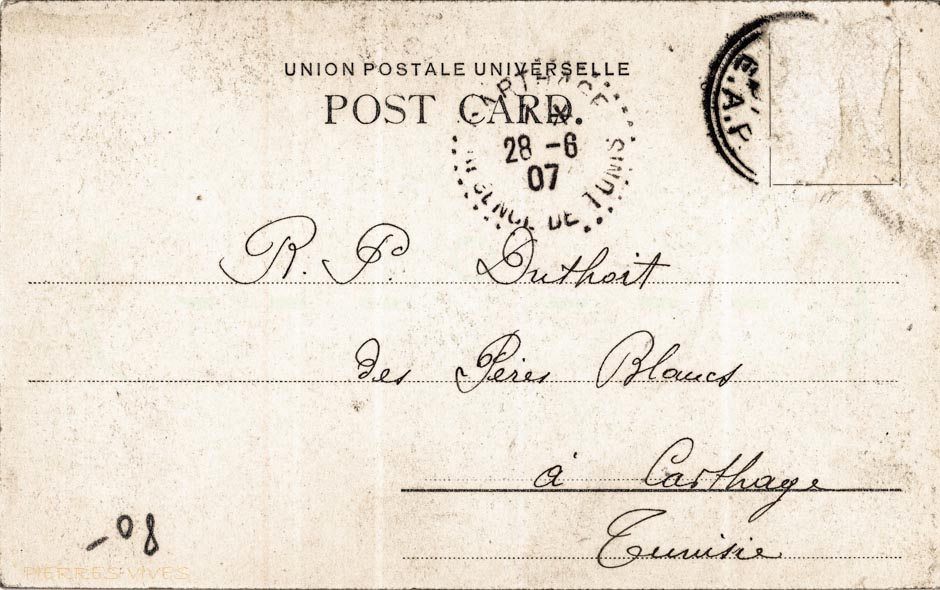 UNION POSTALE UNIVERSELLE
POST CARD.
28 - 6
07
DE TUNIS
R. P. Duthoit
des Pères Blancs
à Carthage
Tunisie
-08
PIERRES-VIVES